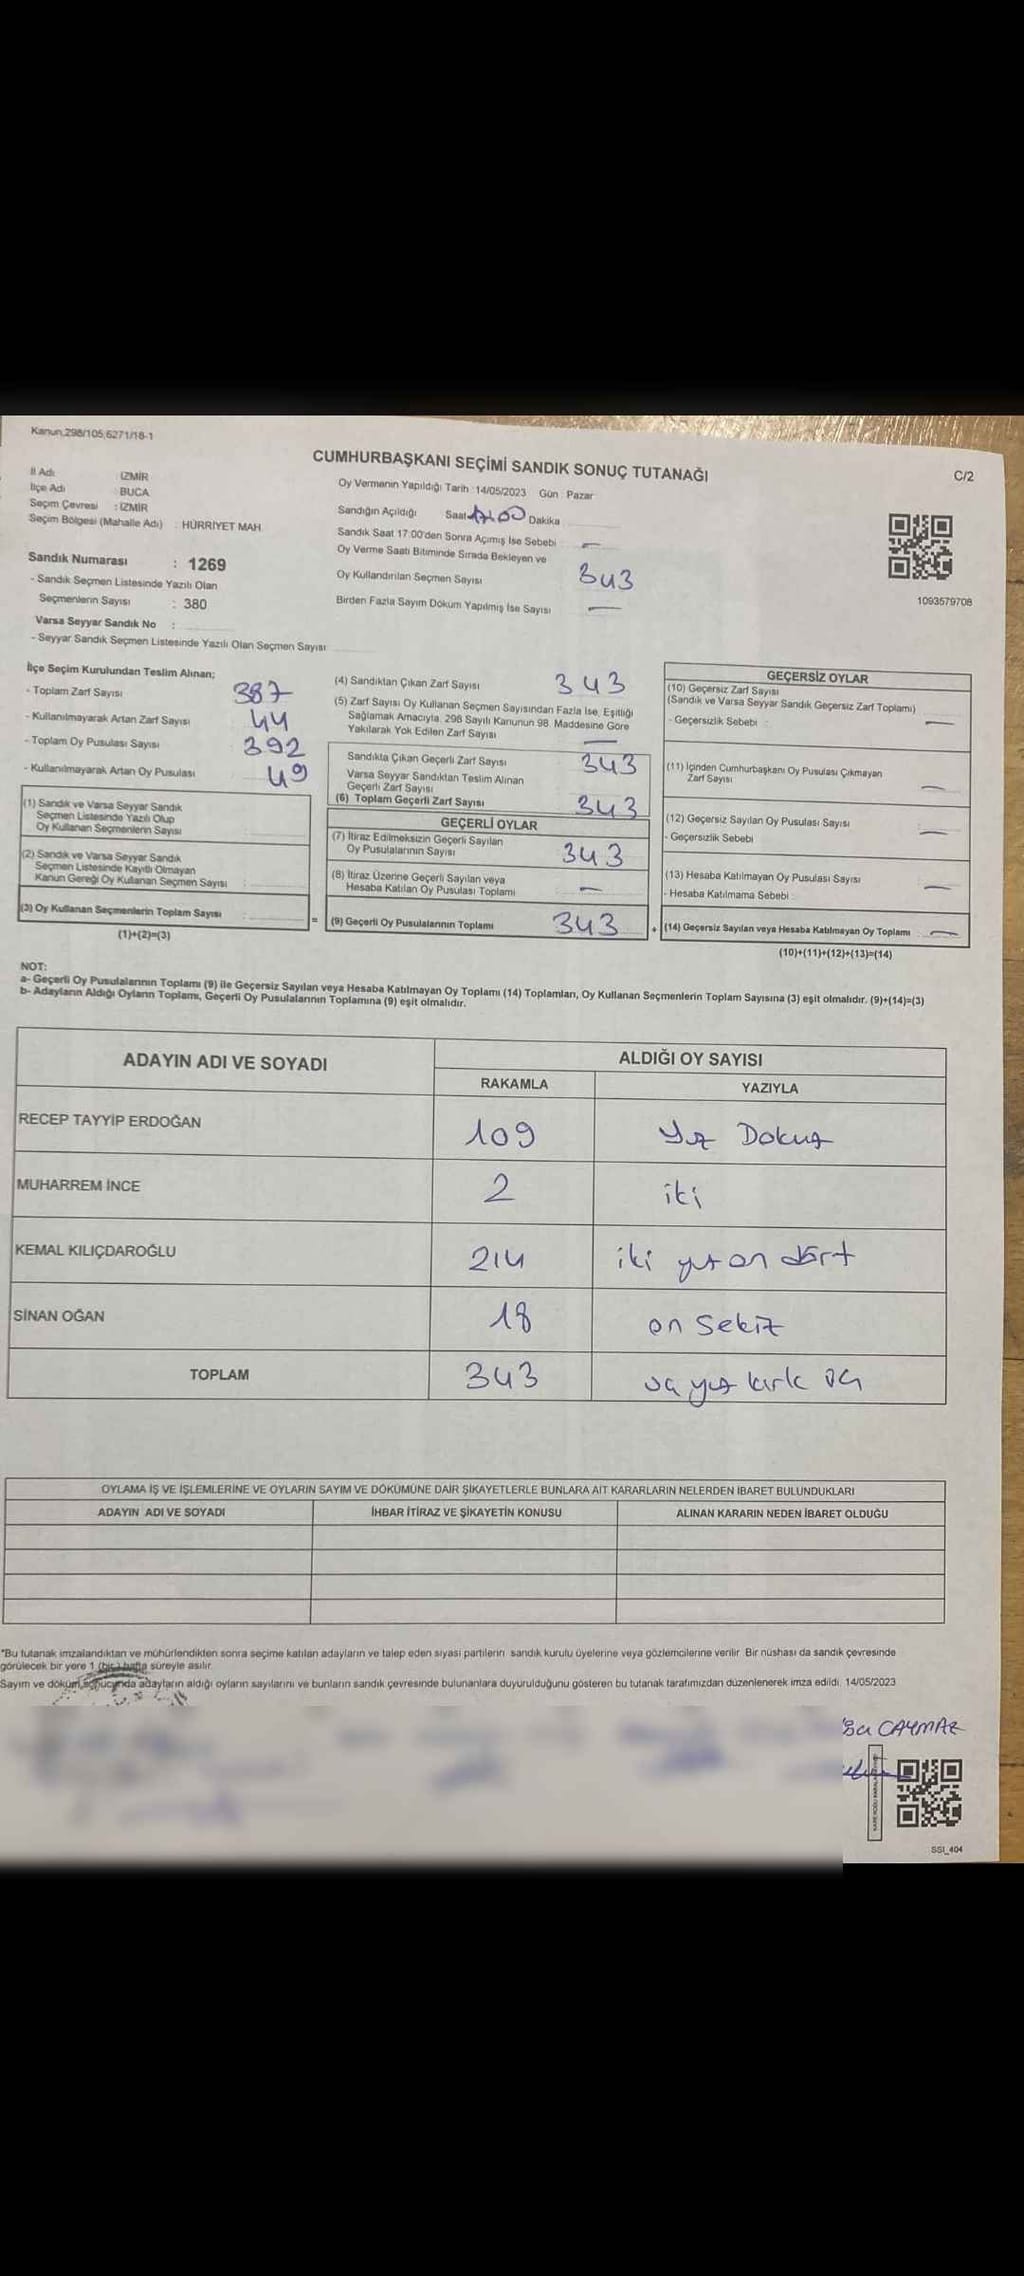 Kanun,298/105;6271/18-1
CUMHURBAŞKANI SEÇİMİ SANDIK SONUÇ TUTANAĞI
C/2
İl Adı : İZMİR
İlçe Adı : BUCA
Seçim Çevresi : İZMİR
Seçim Bölgesi (Mahalle Adı) : HÜRRİYET MAH.
Oy Vermenin Yapıldığı Tarih :14/05/2023 Gün : Pazar
Sandığın Açıldığı Saat 17:00 Dakika
Sandık Saat 17:00'den Sonra Açımış İse Sebebi : —
Oy Verme Saati Bitiminde Sırada Bekleyen ve
Oy Kullandırılan Seçmen Sayısı 343
Birden Fazla Sayım Döküm Yapılmış İse Sayısı —
1093579708
Sandık Numarası : 1269
- Sandık Seçmen Listesinde Yazılı Olan
Seçmenlerin Sayısı : 380
Varsa Seyyar Sandık No :
- Seyyar Sandık Seçmen Listesinde Yazılı Olan Seçmen Sayısı
İlçe Seçim Kurulundan Teslim Alınan;
- Toplam Zarf Sayısı 387
- Kullanılmayarak Artan Zarf Sayısı 44
- Toplam Oy Pusulası Sayısı 392
- Kullanılmayarak Artan Oy Pusulası 49
(1) Sandık ve Varsa Seyyar Sandık
Seçmen Listesinde Yazılı Olup
Oy Kullanan Seçmenlerin Sayısı
(2) Sandık ve Varsa Seyyar Sandık
Seçmen Listesinde Kayıtlı Olmayan
Kanun Gereği Oy Kullanan Seçmen Sayısı :
(3) Oy Kullanan Seçmenlerin Toplam Sayısı :
(1)+(2)=(3)
(4) Sandıktan Çıkan Zarf Sayısı 343
(5) Zarf Sayısı Oy Kullanan Seçmen Sayısından Fazla İse, Eşitliği
Sağlamak Amacıyla, 298 Sayılı Kanunun 98. Maddesine Göre
Yakılarak Yok Edilen Zarf Sayısı —
Sandıkta Çıkan Geçerli Zarf Sayısı 343
Varsa Seyyar Sandıktan Teslim Alınan
Geçerli Zarf Sayısı
(6) Toplam Geçerli Zarf Sayısı 343
GEÇERLİ OYLAR
(7) İtiraz Edilmeksizin Geçerli Sayılan
Oy Pusulalarının Sayısı 343
(8) İtiraz Üzerine Geçerli Sayılan veya
Hesaba Katılan Oy Pusulası Toplamı —
= (9) Geçerli Oy Pusulalarının Toplamı 343 +
GEÇERSİZ OYLAR
(10) Geçersiz Zarf Sayısı
(Sandık ve Varsa Seyyar Sandık Geçersiz Zarf Toplamı)
- Geçersizlik Sebebi : —
(11) İçinden Cumhurbaşkanı Oy Pusulası Çıkmayan
Zarf Sayısı —
(12) Geçersiz Sayılan Oy Pusulası Sayısı : —
- Geçersizlik Sebebi
(13) Hesaba Katılmayan Oy Pusulası Sayısı —
- Hesaba Katılmama Sebebi :
(14) Geçersiz Sayılan veya Hesaba Katılmayan Oy Toplamı —
(10)+(11)+(12)+(13)=(14)
NOT:
a- Geçerli Oy Pusulalarının Toplamı (9) ile Geçersiz Sayılan veya Hesaba Katılmayan Oy Toplamı (14) Toplamları, Oy Kullanan Seçmenlerin Toplam Sayısına (3) eşit olmalıdır. (9)+(14)=(3)
b- Adayların Aldığı Oyların Toplamı, Geçerli Oy Pusulalarının Toplamına (9) eşit olmalıdır.
ADAYIN ADI VE SOYADI
ALDIĞI OY SAYISI
RAKAMLA YAZIYLA
RECEP TAYYİP ERDOĞAN 109 yüz Dokuz
MUHARREM İNCE 2 iki
KEMAL KILIÇDAROĞLU 214 iki yüz on dört
SİNAN OĞAN 18 on sekiz
TOPLAM 343 üç yüz kırk üç
OYLAMA İŞ VE İŞLEMLERİNE VE OYLARIN SAYIM VE DÖKÜMÜNE DAİR ŞİKAYETLERLE BUNLARA AİT KARARLARIN NELERDEN İBARET BULUNDUKLARI
ADAYIN ADI VE SOYADI İHBAR İTİRAZ VE ŞİKAYETİN KONUSU ALINAN KARARIN NEDEN İBARET OLDUĞU
*Bu tutanak imzalandıktan ve mühürlendikten sonra seçime katılan adayların ve talep eden siyasi partilerin sandık kurulu üyelerine veya gözlemcilerine verilir. Bir nüshası da sandık çevresinde
görülecek bir yere 1 (bir) hafta süreyle asılır.
Sayım ve döküm sonucunda adayların aldığı oyların sayılarını ve bunların sandık çevresinde bulunanlara duyurulduğunu gösteren bu tutanak tarafımızdan düzenlenerek imza edildi. 14/05/2023
CAYMAZ
SSI_404